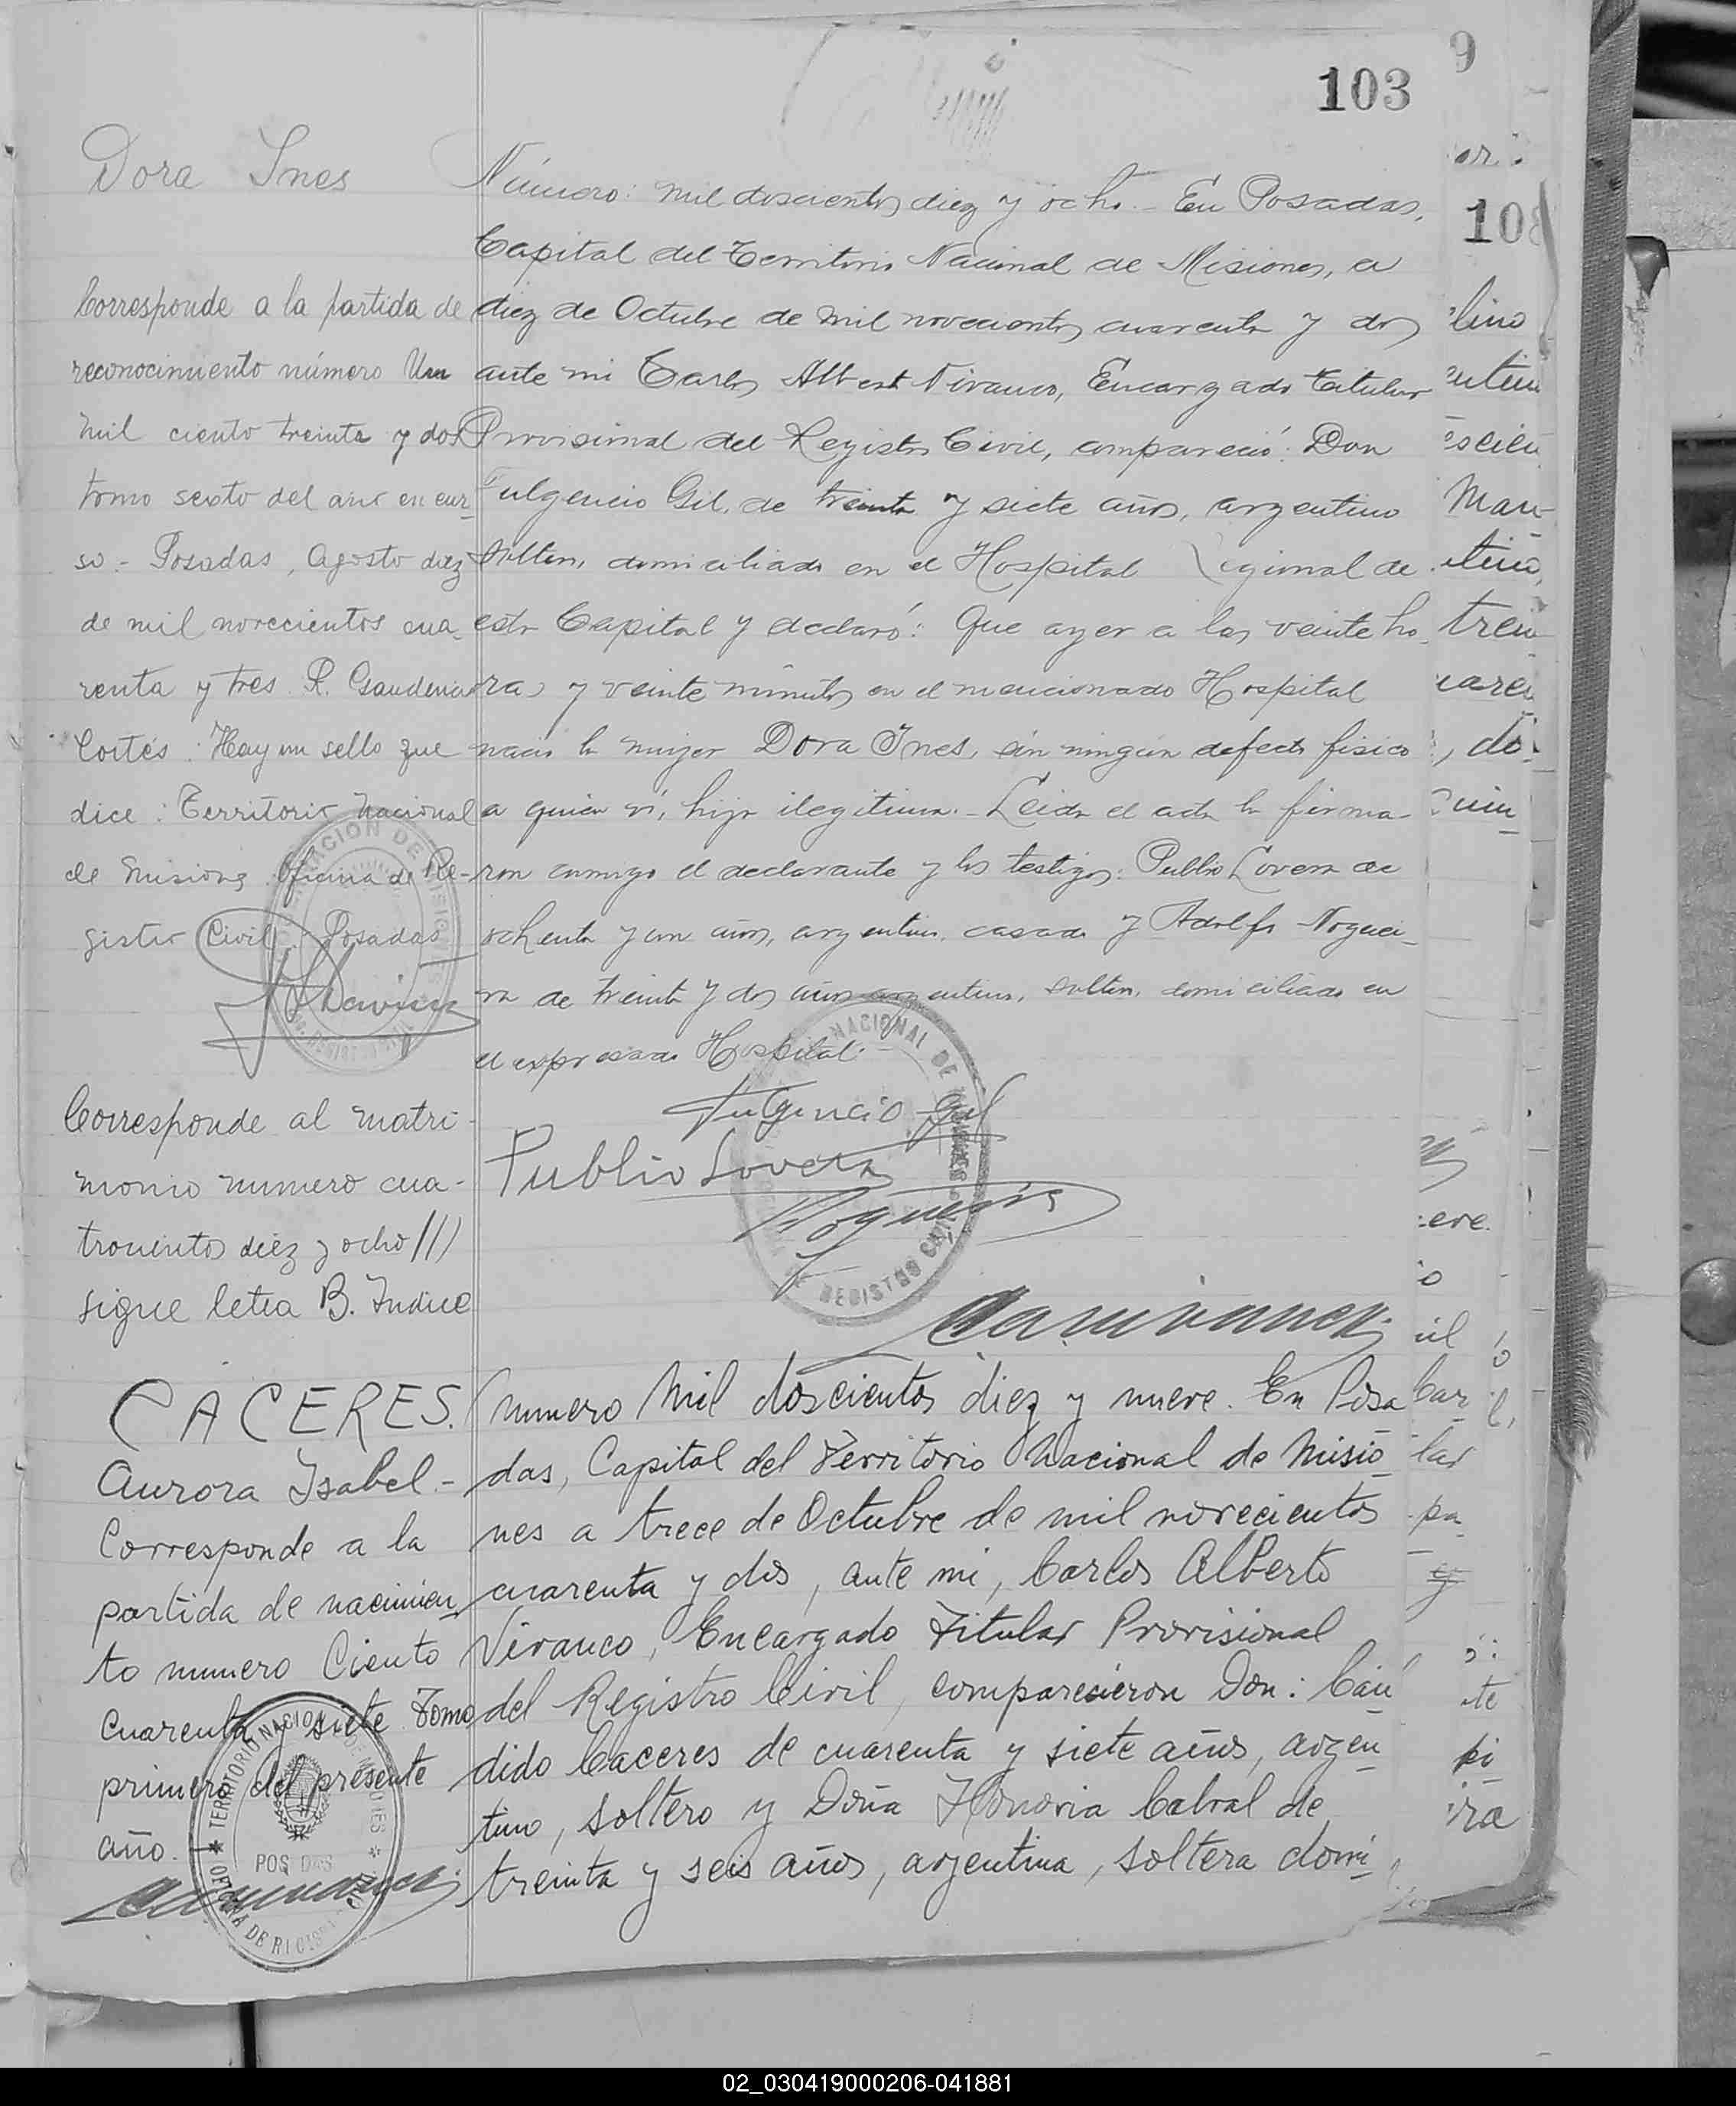 103
9
Dora Ines
Número: mil doscientos diez y ocho.- En Posadas,
Capital del Territorio Nacional de Misiones, a
diez de Octubre de mil novecientos cuarenta y dos
ante mi Carlos Albert Vivanco, Encargado Titular
Provisional del Registro Civil, compareció: Don
Fulgencio Gil, de treinta y siete años, argentino
soltero, domiciliado en el Hospital Regional de
esta Capital y declaró: Que ayer a las veinte ho-
ras y veinte minutos en el mencionado Hospital
nacio la mujer Dora Ines, sin ningún defecto fisico
a quien vi, hija ilegitima.- Leida el acta la firma-
ron conmigo el declarante y los testigos: Publio Lovera de
ochenta y un años, argentino, casado y Adolfo Noguei-
ra de treinta y dos años argentino, soltero, domiciliado en
el expresado Hospital.-
Fulgencio Gil
Publio Lovera
Corresponde a la partida de
reconocimiento número Un
mil ciento treinta y dos
tomo sexto del año en cur-
so.- Posadas, Agosto diez
de mil novecientos cua-
renta y tres. R. Gaudencio
Cortés. Hay un sello que
dice: Territorio Nacional
de Misiones. Oficina de Re-
gistro Civil. Posadas
NACIONAL DE
REGISTRO CIVIL
Corresponde al matri-
monio numero cua-
trocientos diez y ocho ///
sigue letra B. Indice
CACERES.
Aurora Isabel.-
Corresponde a la
partida de nacimien-
to numero Ciento
cuarenta y siete Tomo
primero del presente
año.
TERRITORIO NACIONAL DE MISIONES
OFICINA DE REGISTRO CIVIL
POSADAS
Numero Mil doscientos diez y nueve. En Posa
das, Capital del Territorio Nacional de Misio-
nes a trece de Octubre de mil novecientos
cuarenta y dos, ante mi, Carlos Alberto
Vivanco, Encargado Titular Provisional
del Registro Civil, comparecieron Don: Cán
dido Caceres de cuarenta y siete años, argen-
tino, soltero y Doña Honoria Cabral de
treinta y seis años, argentina, soltera domi-
02_030419000206-041881